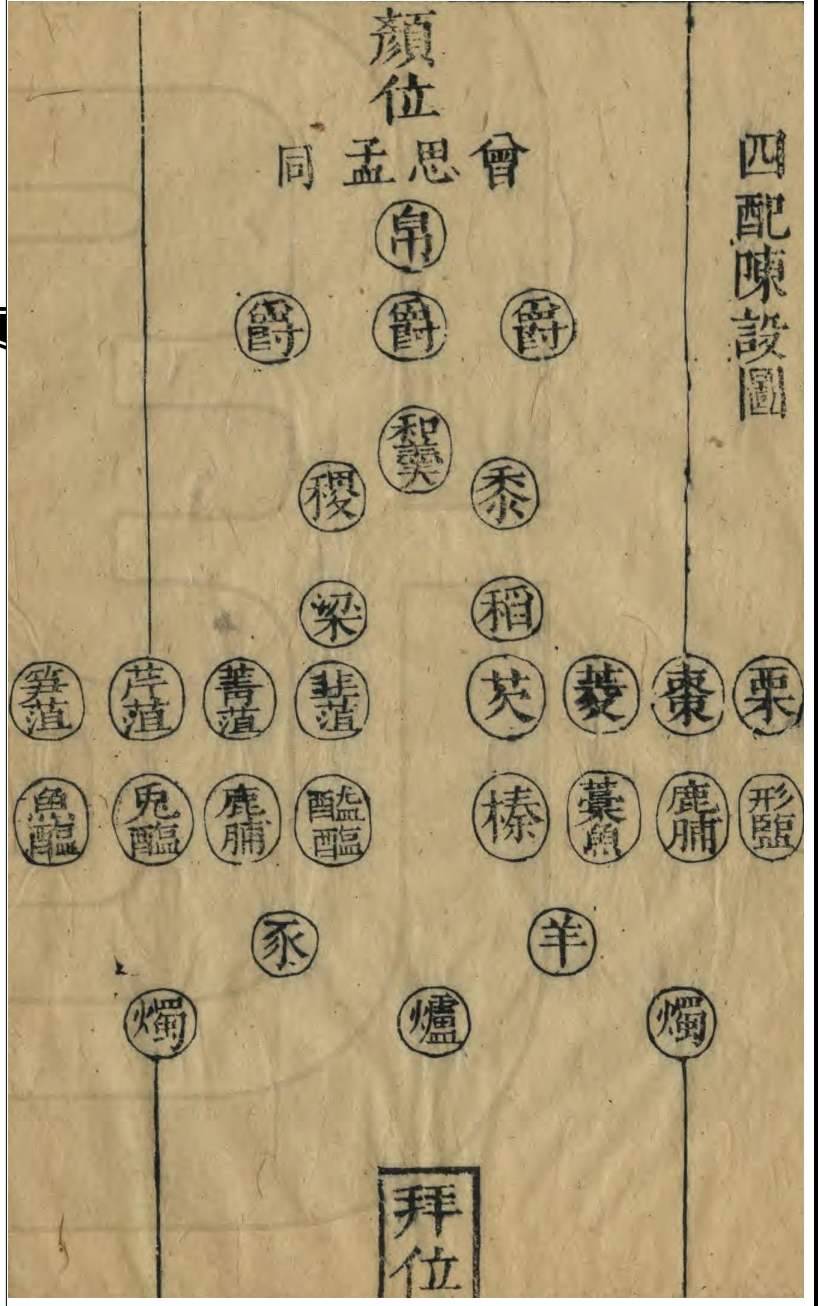 四配陳設圖
顏位
曾思孟同
帛
爵 爵 爵
和羹
黍 稷
稻 梁
栗 棗 菱 芡 韭菹 菁菹 芹菹 笋菹
形鹽 鹿脯 藁魚 榛 醓醢 鹿脯 兔醢 魚醢
羊 豕
燭 爐 燭
拜位